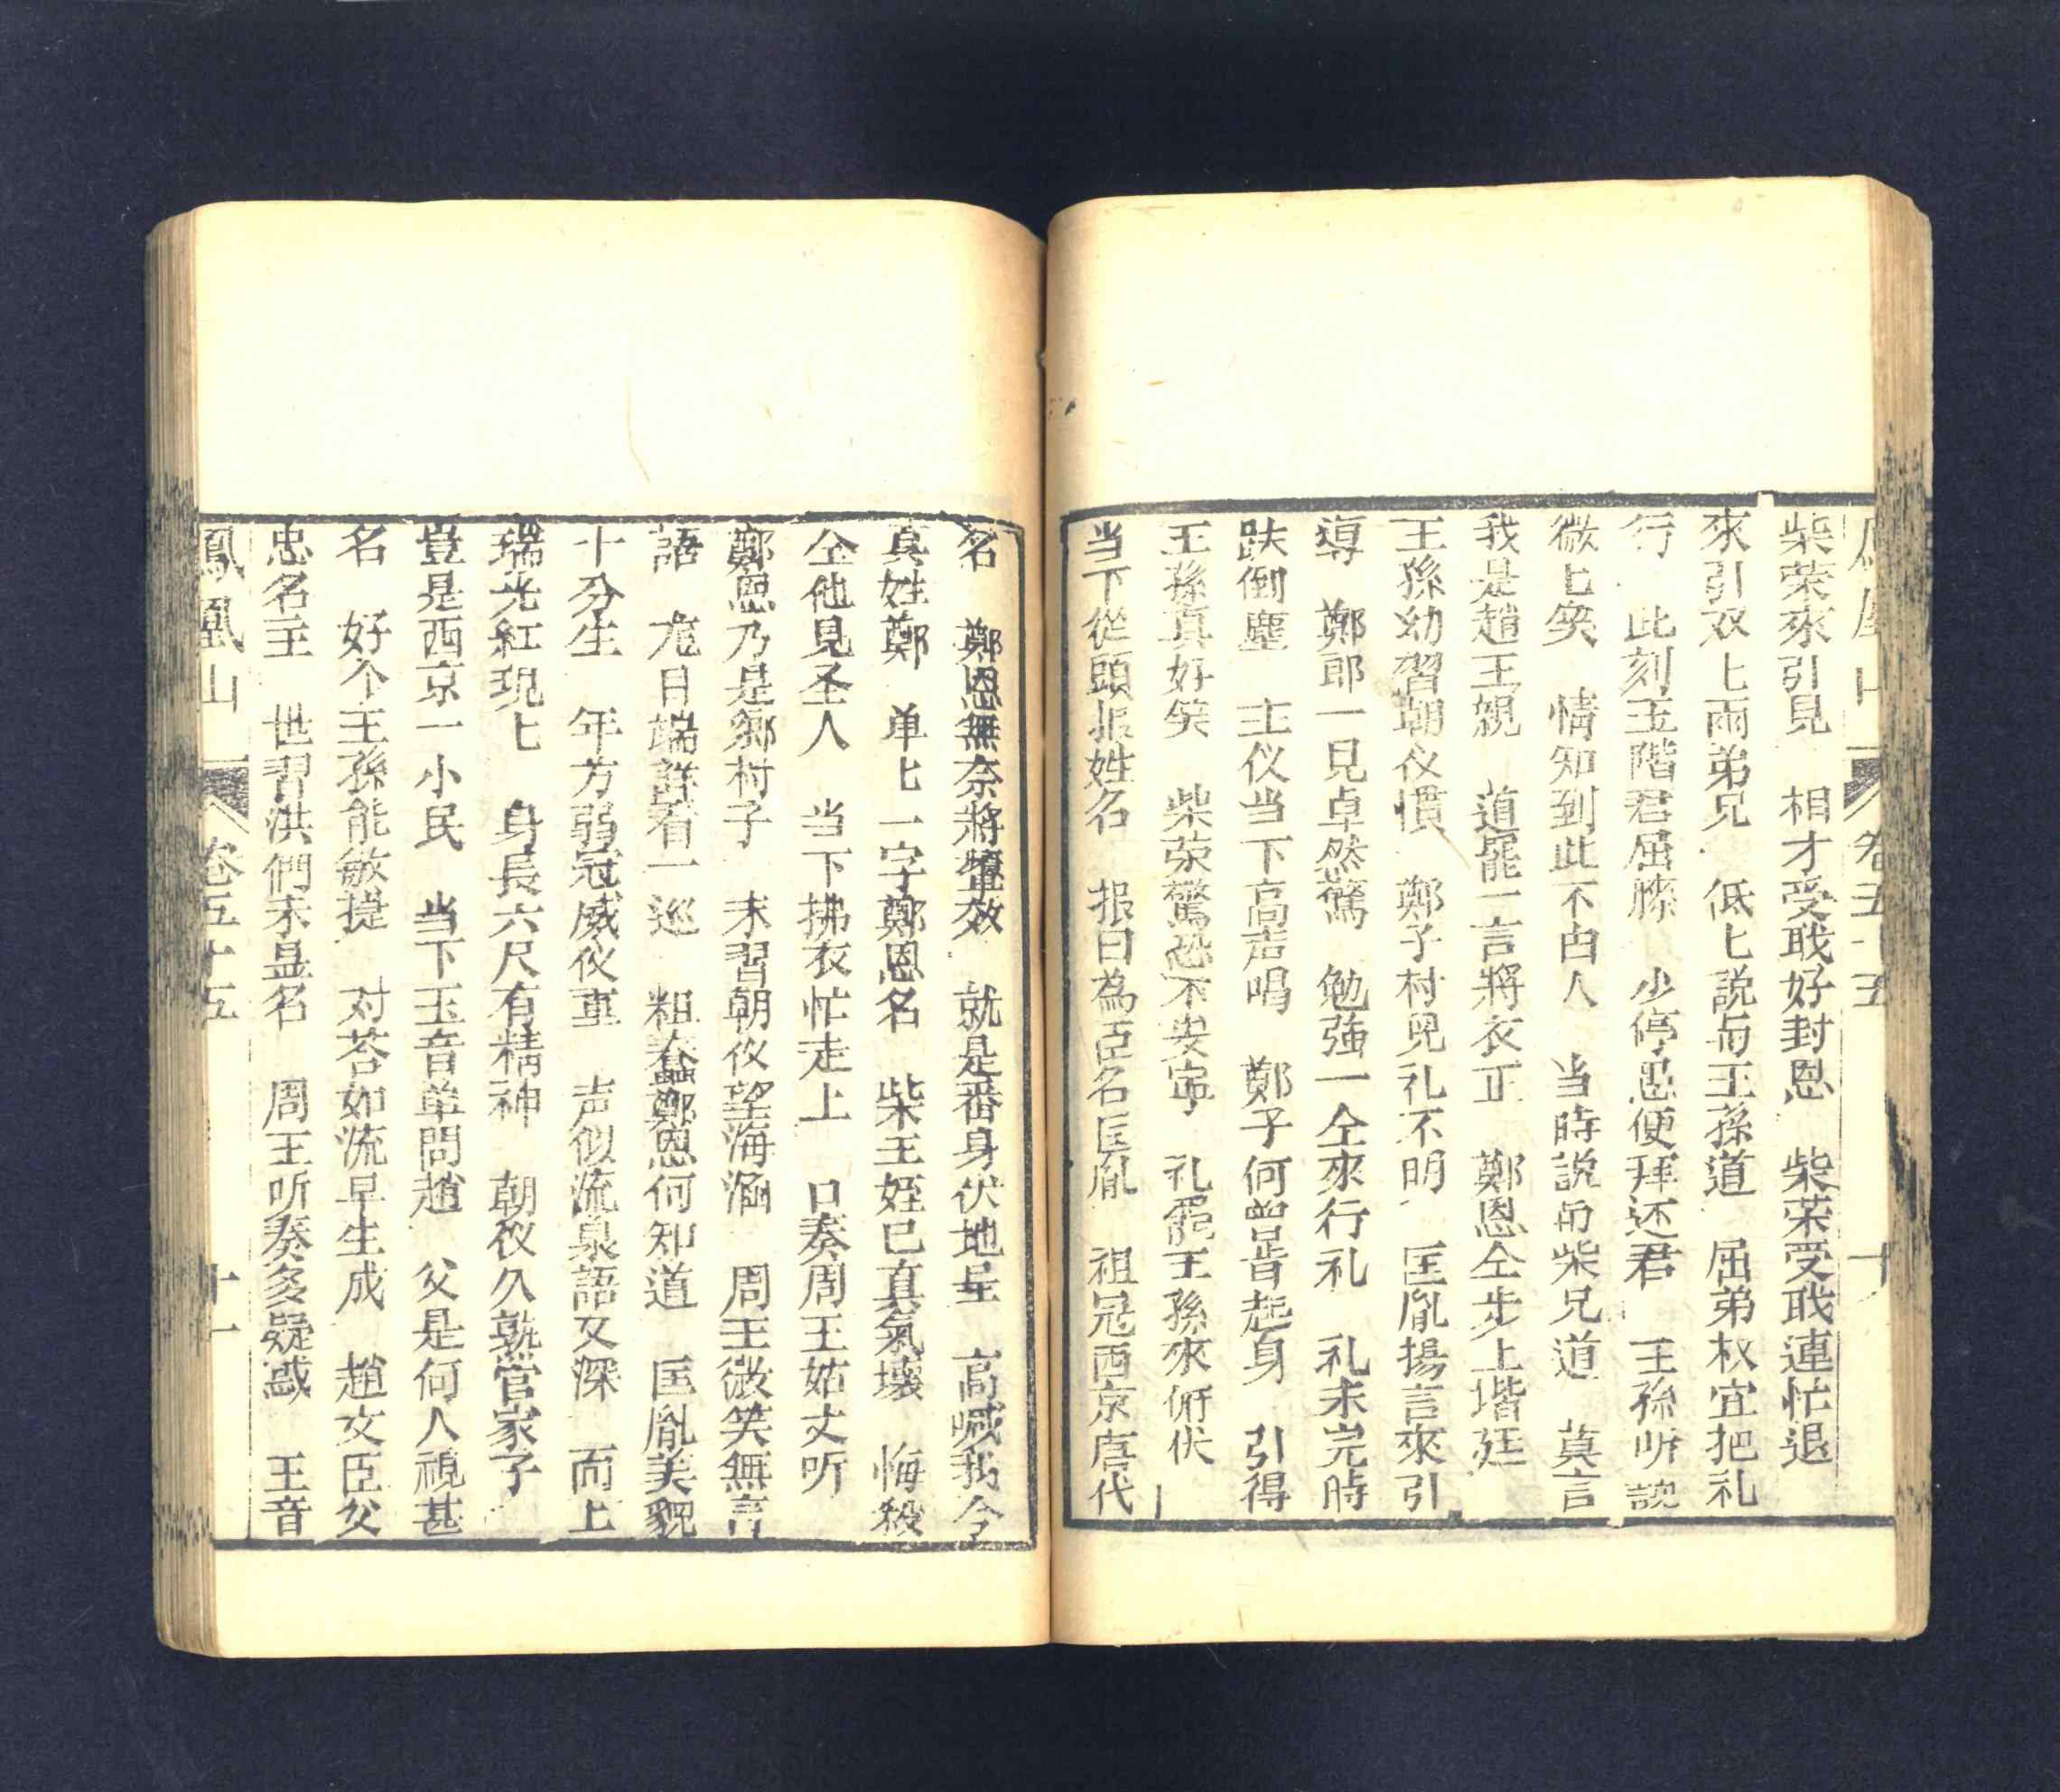 鳳凰山 卷五十五 十
柴荣來引見 相才受戝好封恩 柴荣受戝連忙退
來引双上兩弟兄 低匕説与王孫道 屈弟权宜把礼
行 此刻玉階君屈膝 少停愚便拜还君 王孫听説
微匕笑 情知到此不由人 当時説与柴兄道 莫言
我是趙王親 道罷一言將衣正 鄭恩仝步上堦廷
王孫幼習朝仪慣 鄭子村兒礼不明 匡胤揚言來引
導 鄭郎一見卓然驚 勉強一仝來行礼 礼未完時
跌倒塵 主仪当下高声唱 鄭子何曽肯起身 引得
王孫真好笑 柴荣驚恐不安寧 礼罷王孫來俯伏
当下從頭报姓名 报曰為臣名匡胤 祖冠西京唐代
名 鄭恩無奈將 效 就是番身伏地呈 高喊我今
真姓鄭 单匕一字鄭恩名 柴王姪已真氣壊 悔殺
仝他見圣人 当下拂衣忙走上 口奏周王姑丈听
鄭恩乃是鄉村子 未習朝仪望海涵 周王微笑無言
語 龙目端詳看一巡 粗蠢鄭恩何知道 匡胤美貌
十分生 年方弱冠威仪重 声似流泉語又深 面上
瑞光紅現匕 身長六尺有精神 朝仪久熟官家子
豈是西京一小民 当下玉音单問趙 父是何人視甚
名 好个王孫能敏捷 对荅如流早生成 趙文臣父
忠名主 世習洪們未显名 周王听奏多疑惑 王音
鳳凰山 卷五十五 十一